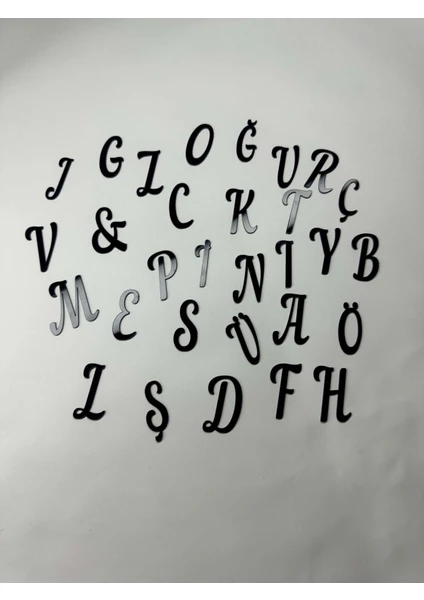 J G Z O Ğ U R Ç
V & C K T Y B
M E P İ N I
S Ü A Ö
L Ş D F H